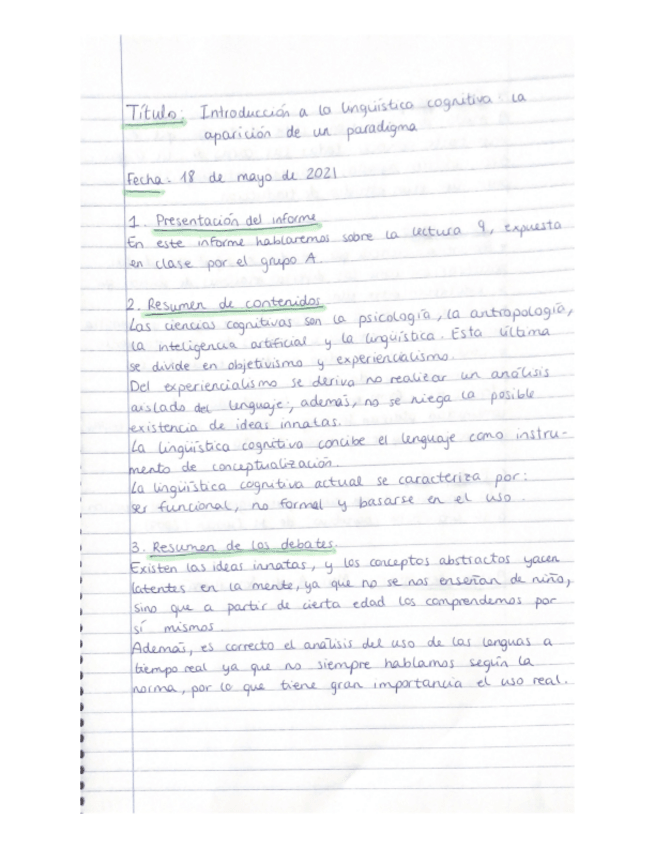 Título: Introducción a la lingüística cognitiva: la
aparición de un paradigma
Fecha: 18 de mayo de 2021
1. Presentación del informe
En este informe hablaremos sobre la lectura 9, expuesta
en clase por el grupo A.
2. Resumen de contenidos
Las ciencias cognitivas son la psicología, la antropología,
la inteligencia artificial y la lingüística. Esta última
se divide en objetivismo y experiencialismo.
Del experiencialismo se deriva no realizar un análisis
aislado del lenguaje; además, no se niega la posible
existencia de ideas innatas.
La lingüística cognitiva concibe el lenguaje como instru-
mento de conceptualización.
La lingüística cognitiva actual se caracteriza por:
ser funcional, no formal y basarse en el uso.
3. Resumen de los debates.
Existen las ideas innatas, y los conceptos abstractos yacen
latentes en la mente, ya que no se nos enseñan de niño,
sino que a partir de cierta edad los comprendemos por
sí mismos.
Además, es correcto el análisis del uso de las lenguas a
tiempo real ya que no siempre hablamos según la
norma, por lo que tiene gran importancia el uso real.